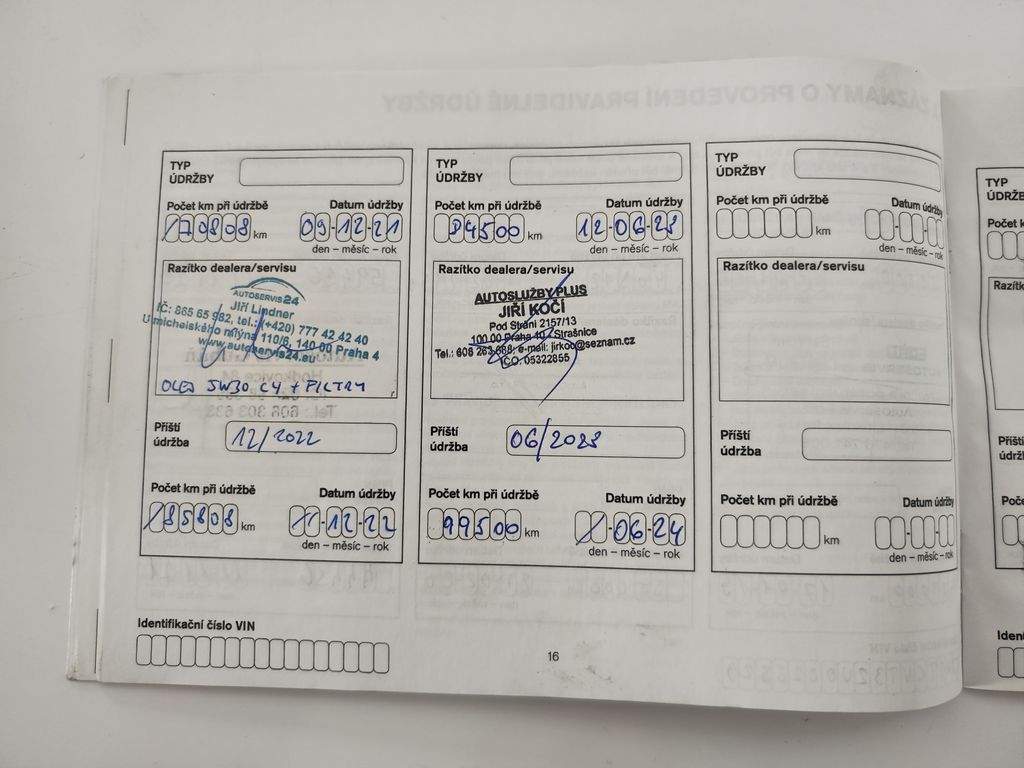 TYP
ÚDRŽBY
Počet km při údržbě Datum údržby
70808 km 09-12-21
den – měsíc – rok
Razítko dealera/servisu
AUTOSERVIS24
Jiří Lindner
IČ: 865 65 982, tel.: (+420) 777 42 42 40
U michelského mlýna 110/6, 140 00 Praha 4
www.autoservis24.eu
OLEJ 5W30 C4 + FILTRY
Příští
údržba 12/2022
Počet km při údržbě Datum údržby
85808 km 12-22
den – měsíc – rok
TYP
ÚDRŽBY
Počet km při údržbě Datum údržby
84500 km 12-06-23
den – měsíc – rok
Razítko dealera/servisu
AUTOSLUŽBY PLUS
JIŘÍ KOČÍ
Pod Strání 2157/13
100 00 Praha 10 - Strašnice
Tel.: 608 263 688; e-mail: jirkoc@seznam.cz
IČO: 05322855
Příští
údržba 06/2023
Počet km při údržbě Datum údržby
99500 km 06-24
den – měsíc – rok
TYP
ÚDRŽBY
Počet km při údržbě Datum údržby
km
den – měsíc – rok
Razítko dealera/servisu
Příští
údržba
Počet km při údržbě Datum údržby
km
den – měsíc – rok
Identifikační číslo VIN
16
TYP